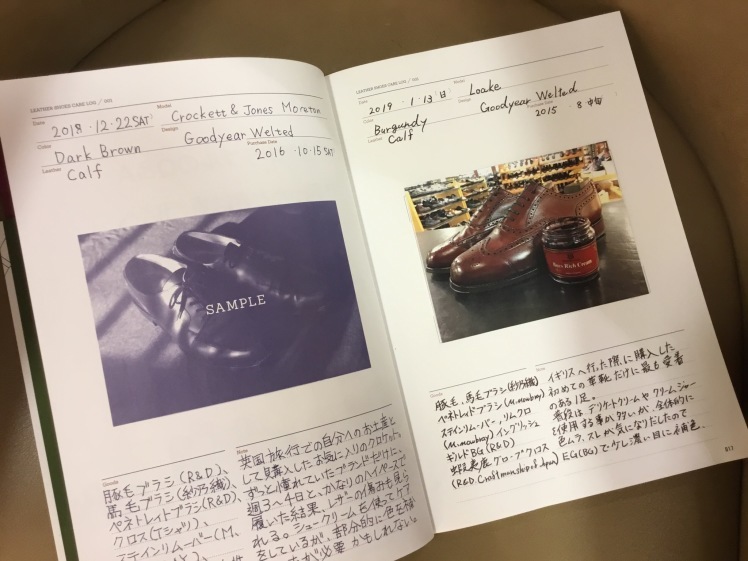 LEATHER SHOES CARE LOG / 005
Date 2018 . 12 . 22 SAT
Model Crockett & Jones Moreton
Color Dark Brown
Design Goodyear Welted
Leather Calf
Purchase Date 2016 . 10 . 15 SAT
SAMPLE
Goods
豚毛ブラシ(R&D)、
馬毛ブラシ(紗乃織)
ペネトレイトブラシ(R&D)、
クロス(Tシャツ)、
ステインリムーバー(M.
Note
英国旅行での自分へのお土産と
して購入したお気に入りのクロケット。
ずっと憧れていたブランドだけに、
週3〜4日と、かなりのハイペースで
履いた結果、レザーの傷みも見ら
れる。シュークリームを使ってケア
をしているが、部分的に色を
が必要かもしれない。
LEATHER SHOES CARE LOG /
Date 2019 . 1 . 13 (日)
Model Loake
Color Burgundy
Design Goodyear Welted
Leather Calf
Purchase Date 2015 . 8 中旬
Rich Cream
Goods
豚毛、馬毛ブラシ(紗乃織)
ペネトレイトブラシ(M.mowbray)
ステインリムーバー、リムクロ
(M.mowbray) イングリッシュ
ギルドBG(R&D)
グローブクロス
(R&D Craftmanship of Japan)
Note
イギリスへ行った際に購入した
初めての革靴だけに最も愛着
のある1足。
普段は、デリケートクリームやクリームジャー
を使用する事が多いが、全体的に
色ムラ、スレが気になりだしたので
EG(BG)で少し濃い目に補色。
013